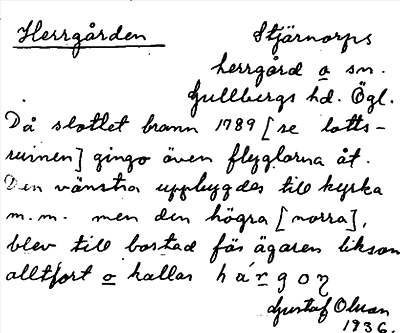 Herrgården Stjärnorps
herrgård o sn.
Gullbergs hd. Ögl.
Då slottet brann 1789 [se slotts-
ruinen] gingo även flyglarna åt.
Den vänstra uppbygdes till kyrka
m.m. men den högra [norra],
blev till bostad för ägaren liksom
alltfort o kallas
Gustaf Olsson
1936.